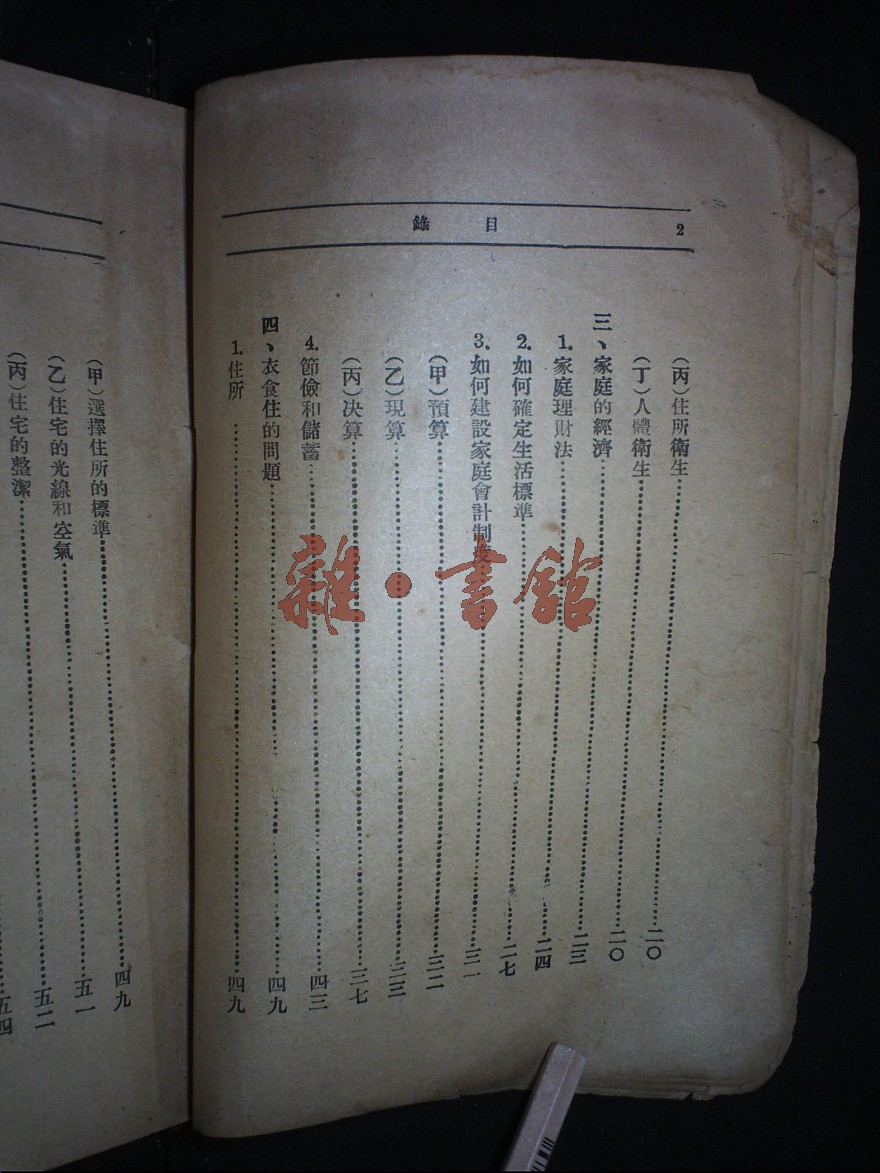 目錄
2
(丙)住所衛生……二〇
(丁)人體衛生……二〇
三、家庭的經濟……二三
1.家庭理財法……二四
2.如何確定生活標準……二七
3.如何建設家庭會計制度……三一
(甲)預算……三二
(乙)現算……三三
(丙)决算……三七
4.節儉和儲蓄……四三
四、衣食住的問題……四九
1.住所……四九
(甲)選擇住所的標準……四九
(乙)住宅的光線和空氣……五一
(丙)住宅的整潔……五二
五四
雜·書館